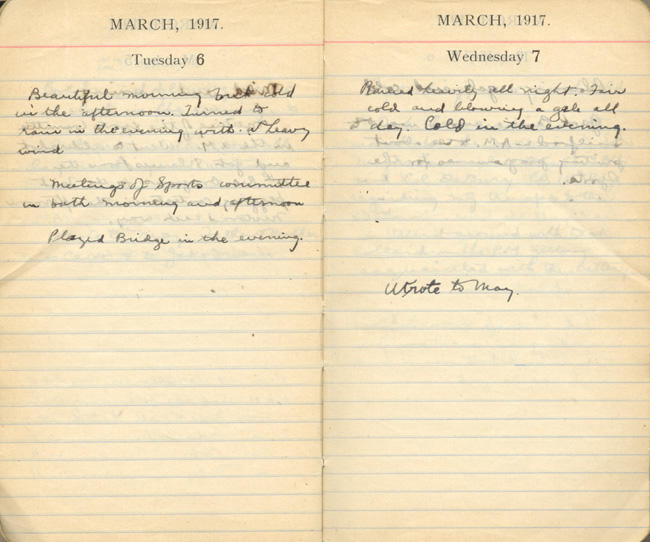 MARCH, 1917.
Tuesday 6
Beautiful morning but cold
in the afternoon. Turned to
rain in the evening with heavy
wind
Meetings of Sports committee
in both morning and afternoon
Played Bridge in the evening.
MARCH, 1917.
Wednesday 7
Rained heavily all night. Fair
cold and blowing a gale all
day. Cold in the evening.
Wrote to May.